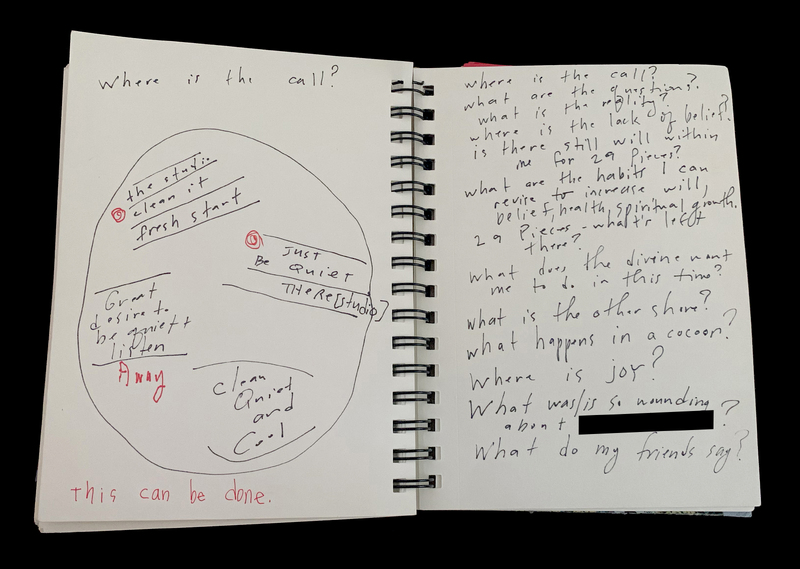 Where is the call?
the studio
clean it
fresh start
Just
Be Quiet
THERE [studio]
Great
desire to
be quiet +
listen
Away
clean
Quiet
and
Cool
This can be done.
where is the call?
what are the questions?
what is the reality?
where is the lack of belief?
is there still will within
me for 29 Pieces?
what are the habits I can
revise to increase will,
belief, health, spiritual growth.
29 Pieces - what's left
there?
what does the divine want
me to do in this time?
what is the other shore?
what happens in a cocoon?
Where is joy?
What was/is so wounding
about ?
What do my friends say?